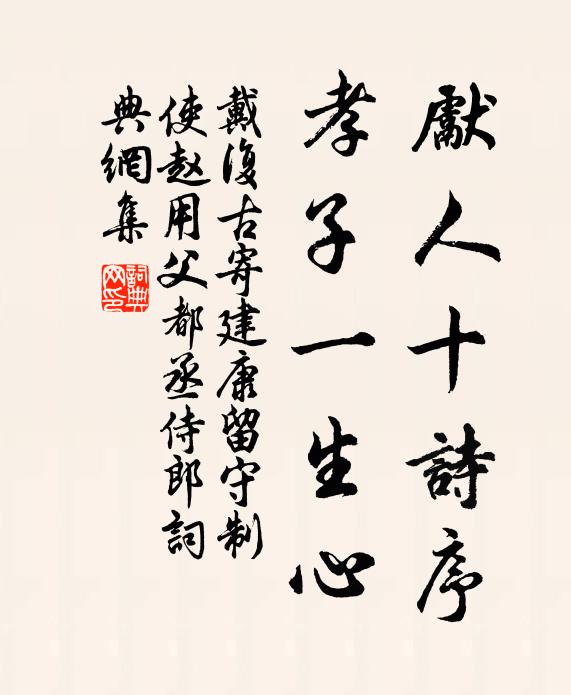 獻人十詩序
孝子一生心
戴復古寄建康留守制
使赵用父都丞侍郎詞
典網集
詞典
网印